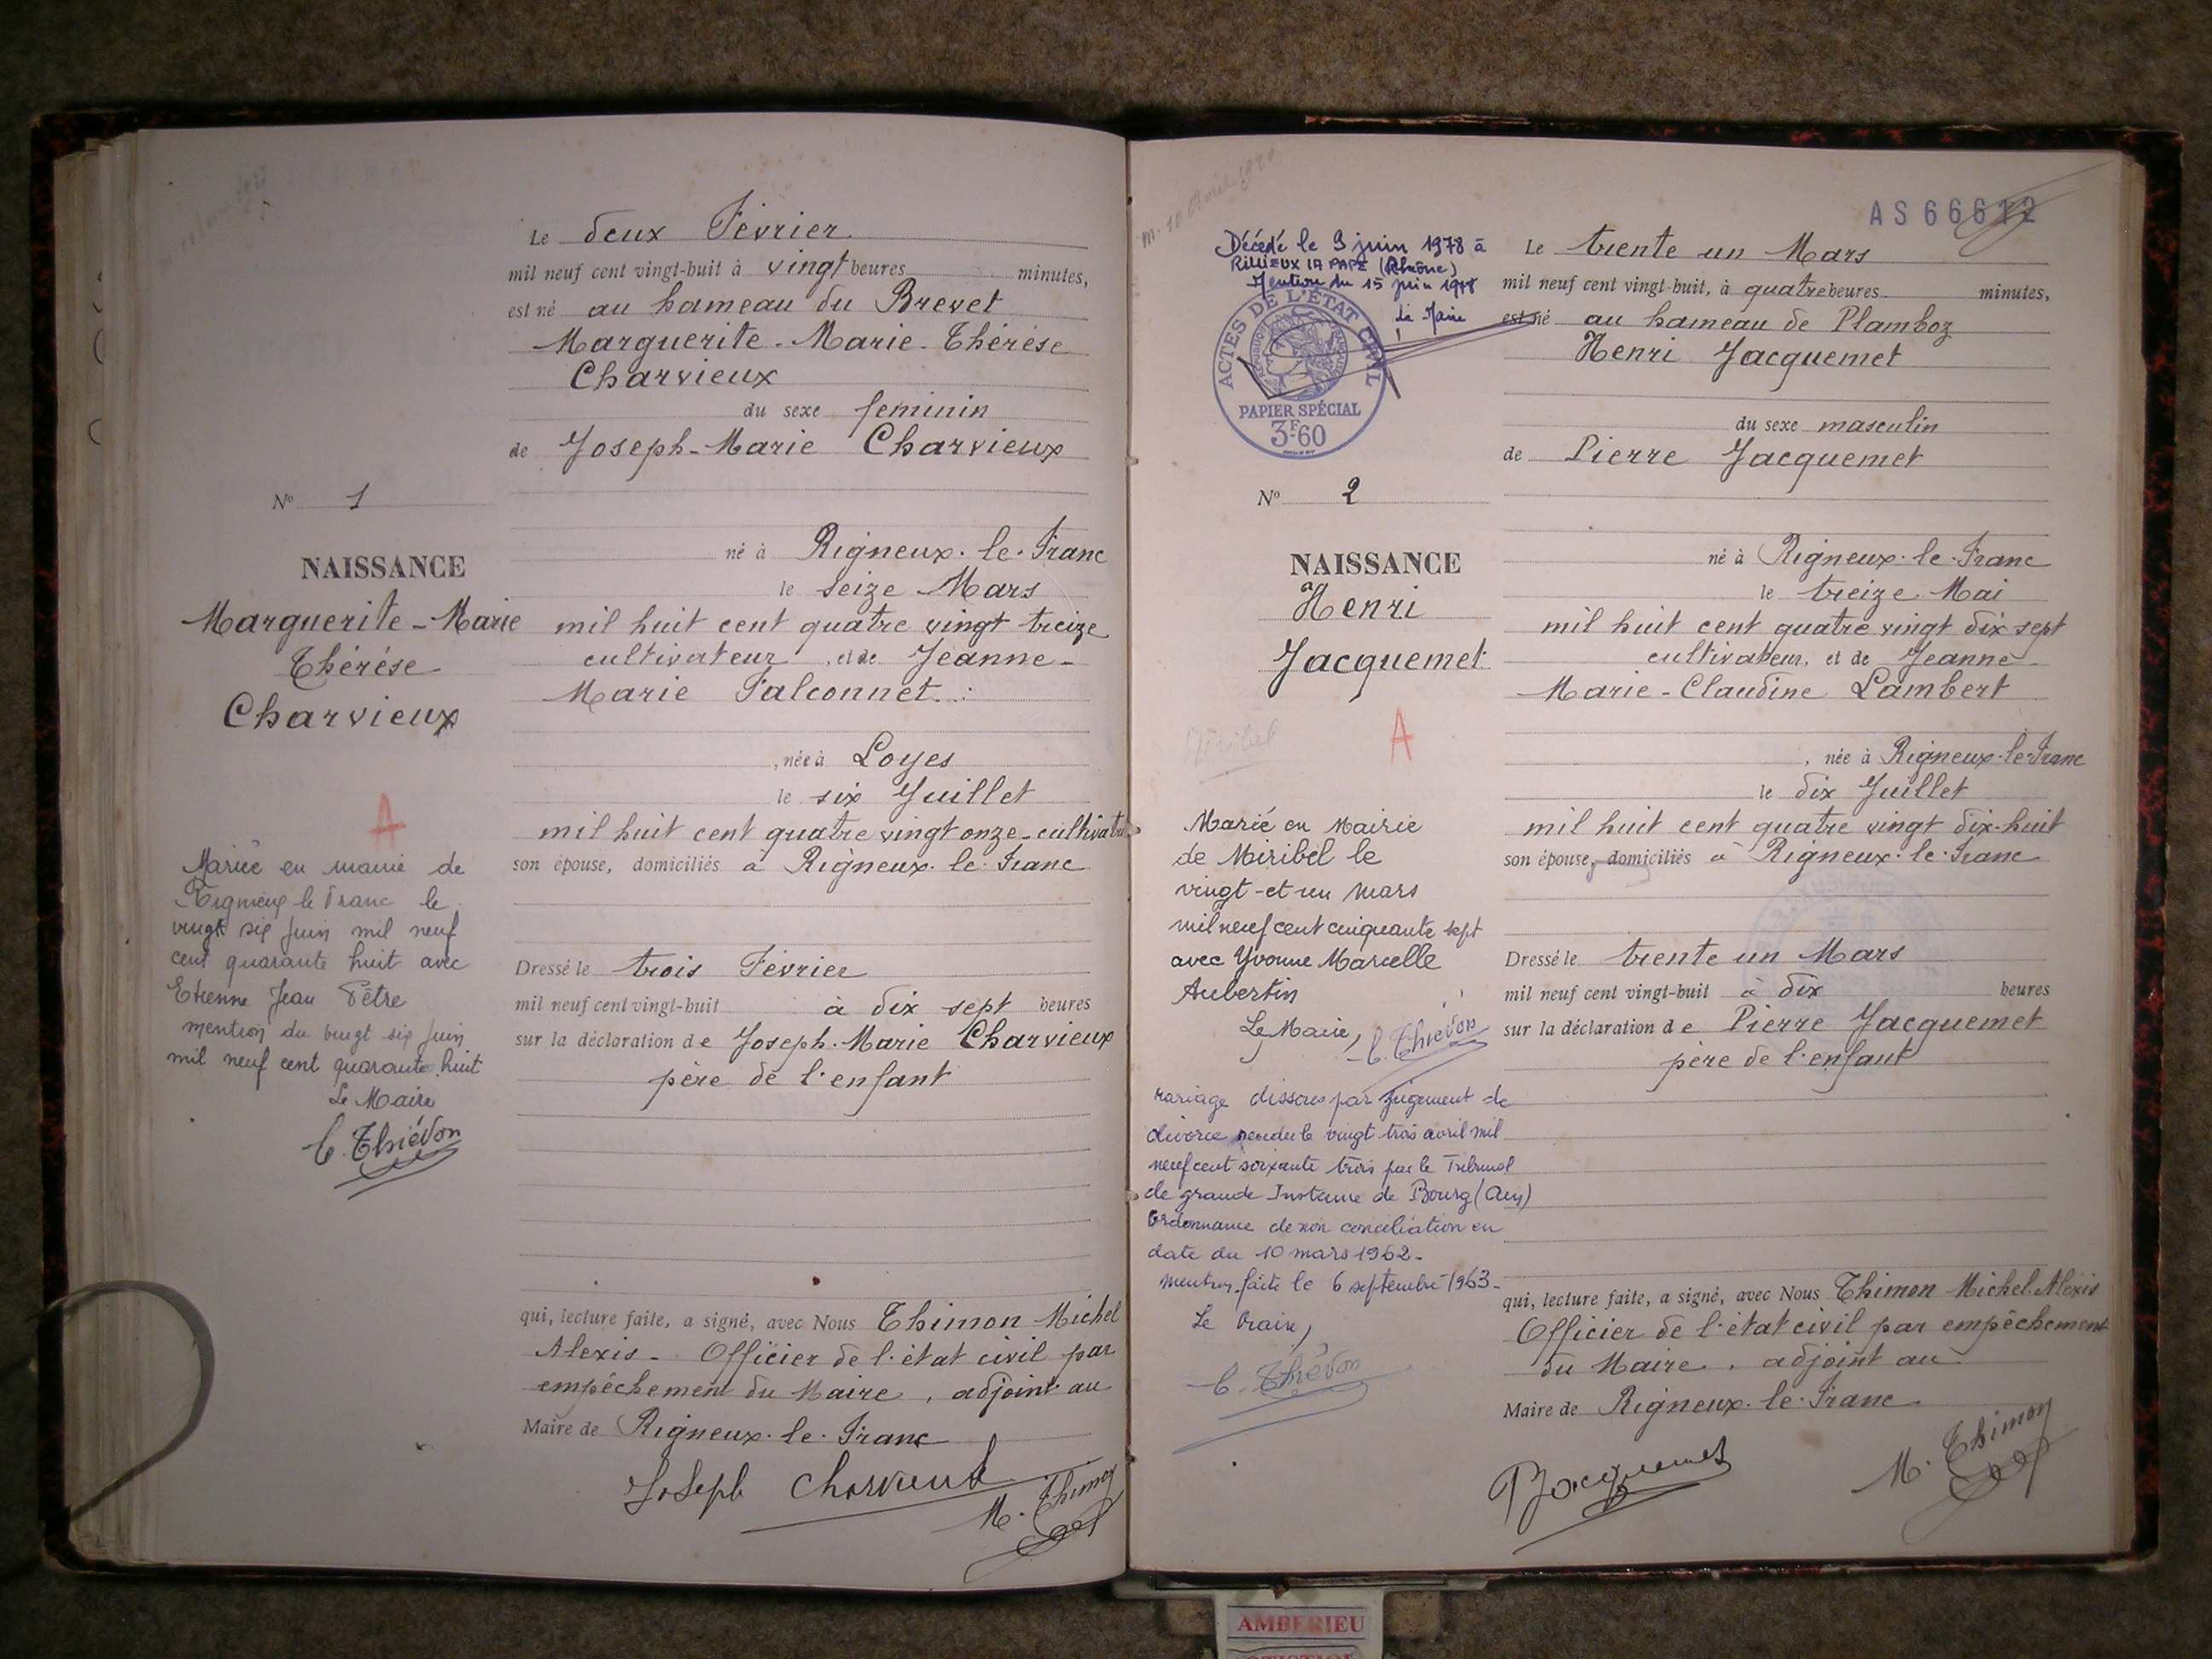 Le deux Février
mil neuf cent vingt-huit à vingt heures minutes,
est né au hameau du Brevet
Marguerite-Marie-Thérèse
Charvieux
du sexe féminin
de Joseph-Marie Charvieux
né à Rigneux-le-Franc
le seize Mars
mil huit cent quatre vingt treize
cultivateur, et de Jeanne-
Marie Falconnet
, née à Loyes
le six Juillet
mil huit cent quatre vingt onze-
son épouse, domiciliés à Rigneux-le-Franc
Dressé le trois Février
mil neuf cent vingt-huit à dix sept heures
sur la déclaration de Joseph-Marie Charvieux
père de l'enfant
qui, lecture faite, a signé, avec Nous Thimon Michel
Alexis- Officier de l'état civil par
empêchement du Maire, adjoint au
Maire de Rigneux-le-Franc
Joseph Charvieux
M. Thimon
No 1
NAISSANCE
Marguerite-Marie
Thérèse
Charvieux
A
Mariée en mairie de
Rignieux le Franc le
vingt six juin mil neuf
cent quarante huit avec
Etienne Jean Pêtre
mention du vingt six juin
mil neuf cent quarante huit
Le Maire
C. Thiévon
AS 66612
Le trente un Mars
mil neuf cent vingt-huit, à quatre heures minutes,
est né au hameau de Plamboz
Henri Jacquemet
du sexe masculin
de Pierre Jacquemet
né à Rigneux-le-Franc
le treize Mai
mil huit cent quatre vingt dix sept
cultivateur, et de Jeanne-
Marie-Claudine Lambert
, née à Rigneux-le-Franc
le dix Juillet
mil huit cent quatre vingt dix-huit
son épouse, domiciliés à Rigneux-le-Franc
Dressé le trente un Mars
mil neuf cent vingt-huit à dix heures
sur la déclaration de Pierre Jacquemet
père de l'enfant
qui, lecture faite, a signé, avec Nous Thimon Michel Alexis
Officier de l'état civil par empêchement
du Maire, adjoint au
Maire de Rigneux-le-Franc
PJacquemet
M. Thimon
m. 10 Avril
Décédé le 9 juin 1978 à
RILLIEUX LA PAPE (Rhône)
Mention du 15 juin 1978
Le Maire
ACTES DE L'ÉTAT CIVIL
PAPIER SPÉCIAL
3F60
No 2
NAISSANCE
Henri
Jacquemet
Miribel
A
Marié en Mairie
de Miribel le
vingt-et-un mars
mil neuf cent cinquante sept
avec Yvonne Marcelle
Aubertin
Le Maire,
C. Thiévon
Mariage dissous par jugement de
divorce rendu le vingt trois avril mil
neuf cent soixante trois par le Tribunal
de grande Instance de Bourg (Ain)
Ordonnance de non conciliation en
date du 10 mars 1962-
mention faite le 6 septembre 1963-
Le Maire,
C. Thiévon
AMBERIEU